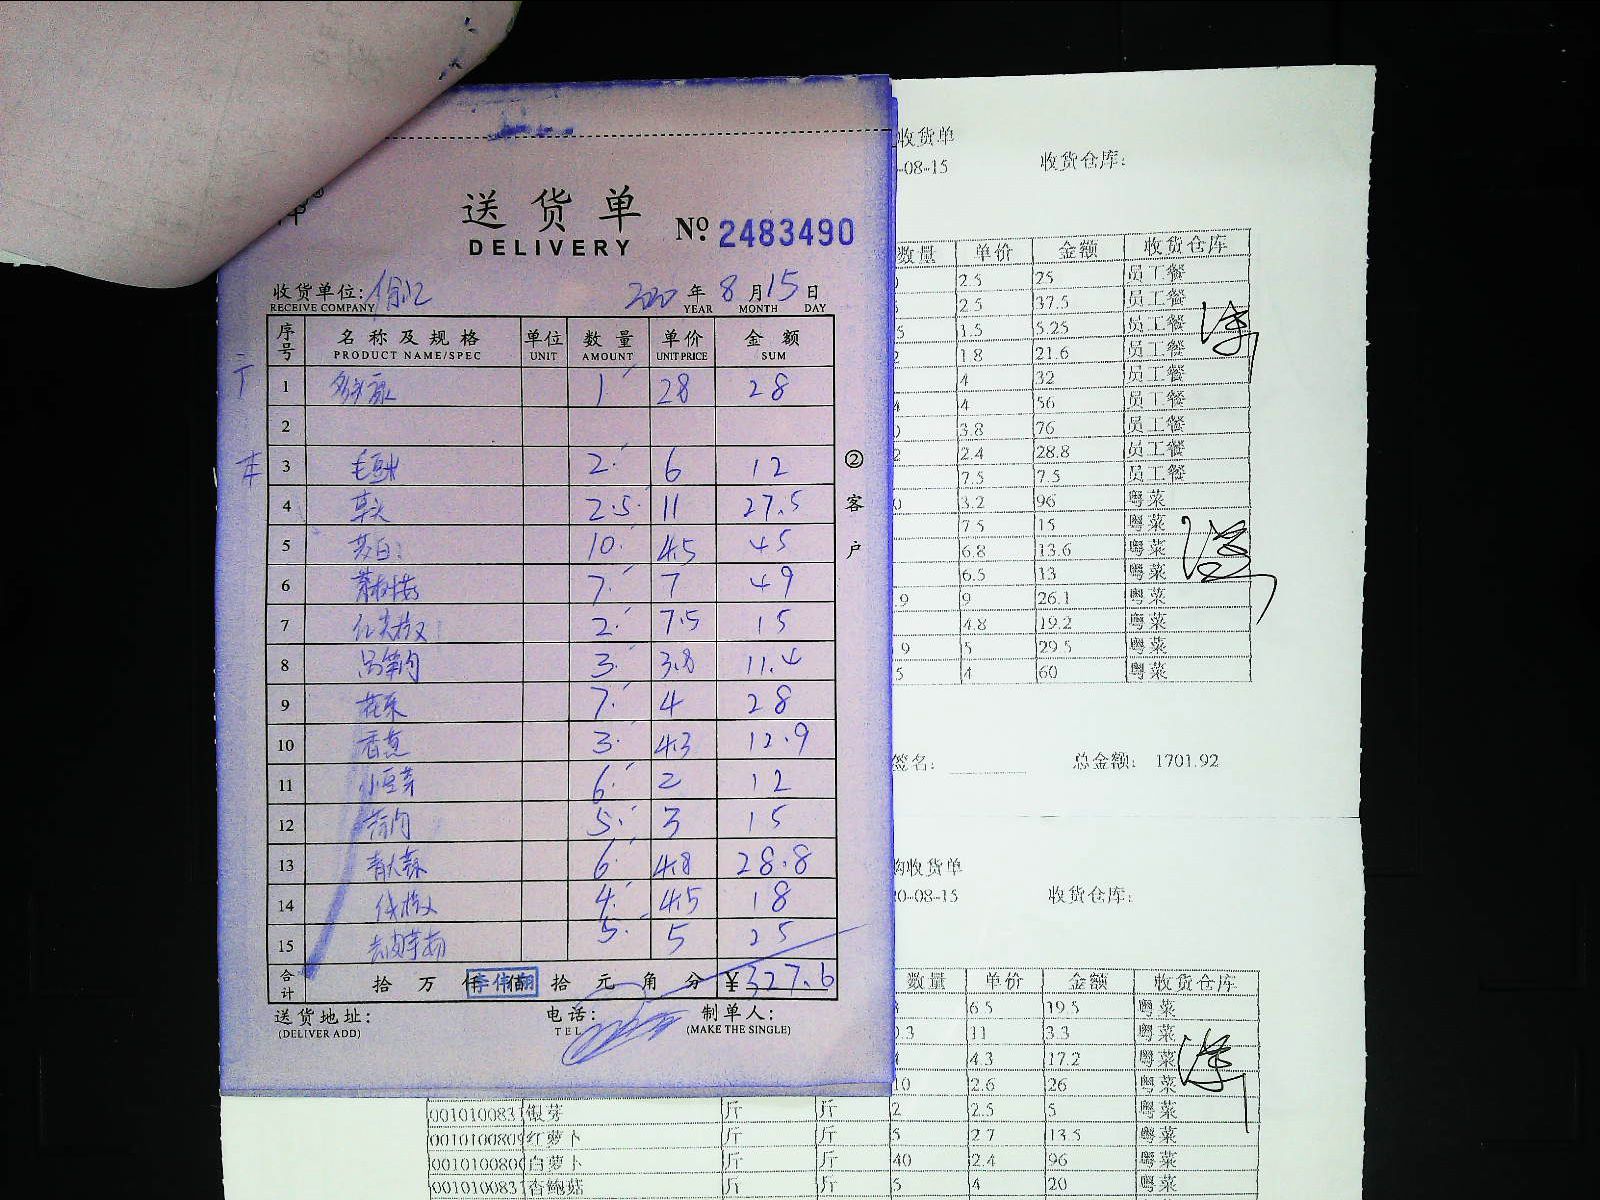 送货单
DELIVERY
№ 2483490
收货单位:
RECEIVE COMPANY
2020 年 8 月 15 日
YEAR MONTH DAY
序号 名称及规格 单位 数量 单价 金额
PRODUCT NAME/SPEC UNIT AMOUNT UNIT PRICE SUM
1 1 28 28
2
3 毛豆米 2 6 12
4 草头 2.5 11 27.5
5 茭白 10 4.5 45
6 茶树菇 7 7 49
7 红尖椒 2 7.5 15
8 3 3.8 11.4
9 花菜 7 4 28
10 香葱 3 4.3 12.9
11 小豆芽 6 2 12
12 5 3 15
13 青大蒜 6 4.8 28.8
14 4 4.5 18
15 去皮芋艿 5 5 25
合计 拾 万 仟 佰 拾 元 角 分 ¥327.6
送货地址: 电话: 制单人:
(DELIVER ADD) TEL (MAKE THE SINGLE)
②客户
收货单
-08-15 收货仓库:
数量 单价 金额 收货仓库
2.5 25 员工餐
2.5 37.5 员工餐
5 1.5 5.25 员工餐
2 1.8 21.6 员工餐
4 32 员工餐
4 4 56 员工餐
3.8 76 员工餐
2 2.4 28.8 员工餐
7.5 7.5 员工餐
0 3.2 96 粤菜
7.5 15 粤菜
6.8 13.6 粤菜
6.5 13 粤菜
.9 9 26.1 粤菜
4.8 19.2 粤菜
9 5 29.5 粤菜
5 4 60 粤菜
签名: 总金额: 1701.92
购收货单
0-08-15 收货仓库:
数量 单价 金额 收货仓库
6.5 19.5 粤菜
0.3 11 3.3 粤菜
4 4.3 17.2 粤菜
10 2.6 26 粤菜
001010083 银芽 斤 斤 2 2.5 5 粤菜
001010080 红萝卜 斤 斤 5 2.7 13.5 粤菜
001010080 白萝卜 斤 斤 40 2.4 96 粤菜
001010083 杏鲍菇 斤 斤 5 4 20 粤菜